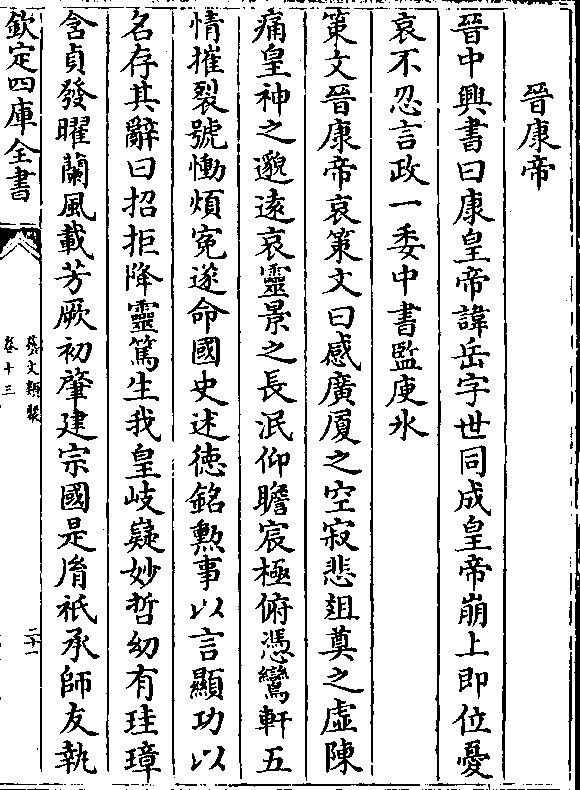 晉康帝
晉中興書曰康皇帝諱岳字世同成皇帝崩上即位憂
哀不忍言政一委中書監庾氷
策文晉康帝哀策文曰感廣厦之空寂悲俎奠之虛陳
痛皇神之邈逺哀靈景之長泯仰瞻宸極俯憑鸞軒五
情摧裂號慟煩寃遂命國史述徳銘勲事以言顯功以
名存其辭曰招拒降靈篤生我皇岐嶷妙哲幼有珪璋
含貞發曜蘭風載芳厥初肇建宗國是胤祇承師友執
欽定四庫全書
藝文類聚
卷十三
二十一